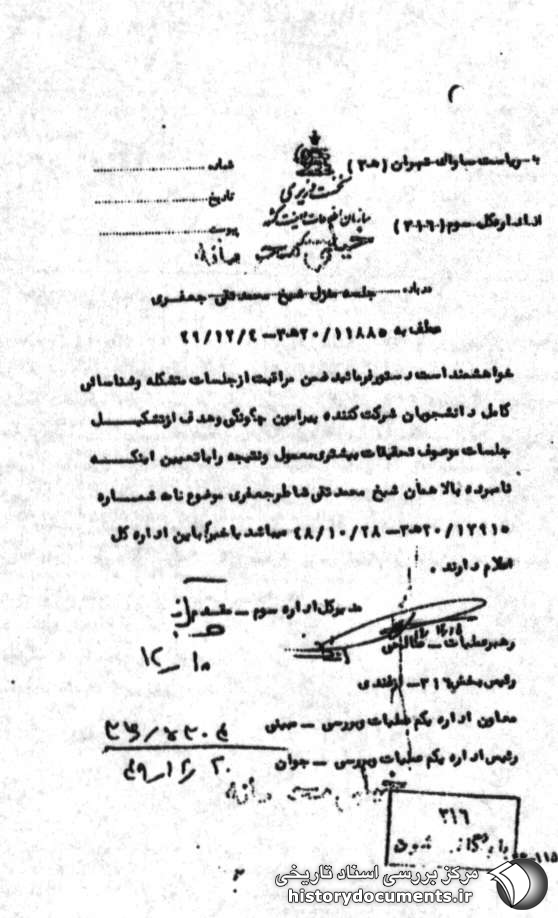 ۲
به ریاست ساواک تهران (۲۰ه۳)
شماره
نخست وزیری
تاریخ
سازمان اطلاعات و امنیت کشور
از اداره کل سوم (۳۱۶)
پیوست
خیلی محرمانه
درباره جلسه منزل شیخ محمد تقی جعفری
عطف به ۱۱۸۸۵/۲۰ه۳ـ ۴۹/۱۲/۴
خواهشمند است دستور فرمائید ضمن مراقبت از جلسات متشکله و شناسائی
کامل دانشجویان شرکت کننده پیرامون چگونگی و هدف از تشکیل
جلسات موصوف تحقیقات بیشتری معمول و نتیجه را با تعیین اینکه
نامبرده بالا همان شیخ محمد تقی شاطر جعفری موضوع نامه شماره
۱۲۹۱۵/۲۰ه۳ـ ۴۸/۱۰/۲۸ میباشد یا خیر باین اداره کل
اعلام دارند.
مدیرکل اداره سوم ـ مقدم
۱۲/۱۰
رهبر عملیات ـ
رئیس بخش ۳۱۶ ـ
معاون اداره یکم عملیات و بررسی ـ
رئیس اداره یکم عملیات و بررسی ـ جوان
خیلی محرمانه
۳۱۶
بایگانی شود
مرکز بررسی اسناد تاریخی
historydocuments.ir